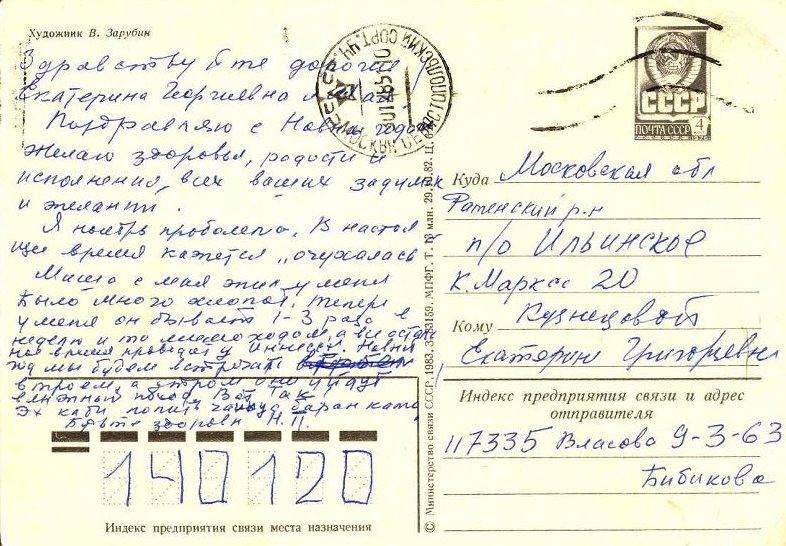 Художник В. Зарубин
Здравствуйте дорогие
Екатерина Георгиевна
Поздравляю с Новым годом
желаю здоровья, радости и
исполнения, всех ваших задумок
и желаний.
Я ноябрь проболела. В настоя
щее время кажется „очухалась
Миша с мая
было много хлопот. Теперь
у меня он бывает 1-3 раза в
неделю и то мимоходом, а все осталь
ное время проводит у Инессы. Новый
год мы будем встречать
втроем, а утром они уйдут
в лыжный поход. Вот так
Эх кабы попить чайку
Будьте здоровы Н.П.
140120
Индекс предприятия связи места назначения
© Министерство связи СССР, 1983. З. 83159. МПФГ. Т. 13 млн. 29.10.82. Ц.
СССР
ПОЧТА СССР 4
МОСКВА
Куда Московская обл
Раменский р-н
п/о Ильинское
К. Маркса 20
Кузнецовой
Кому
Екатерине Григорьевне
Индекс предприятия связи и адрес
отправителя
117335 Власова 9-3-63
Бибикова